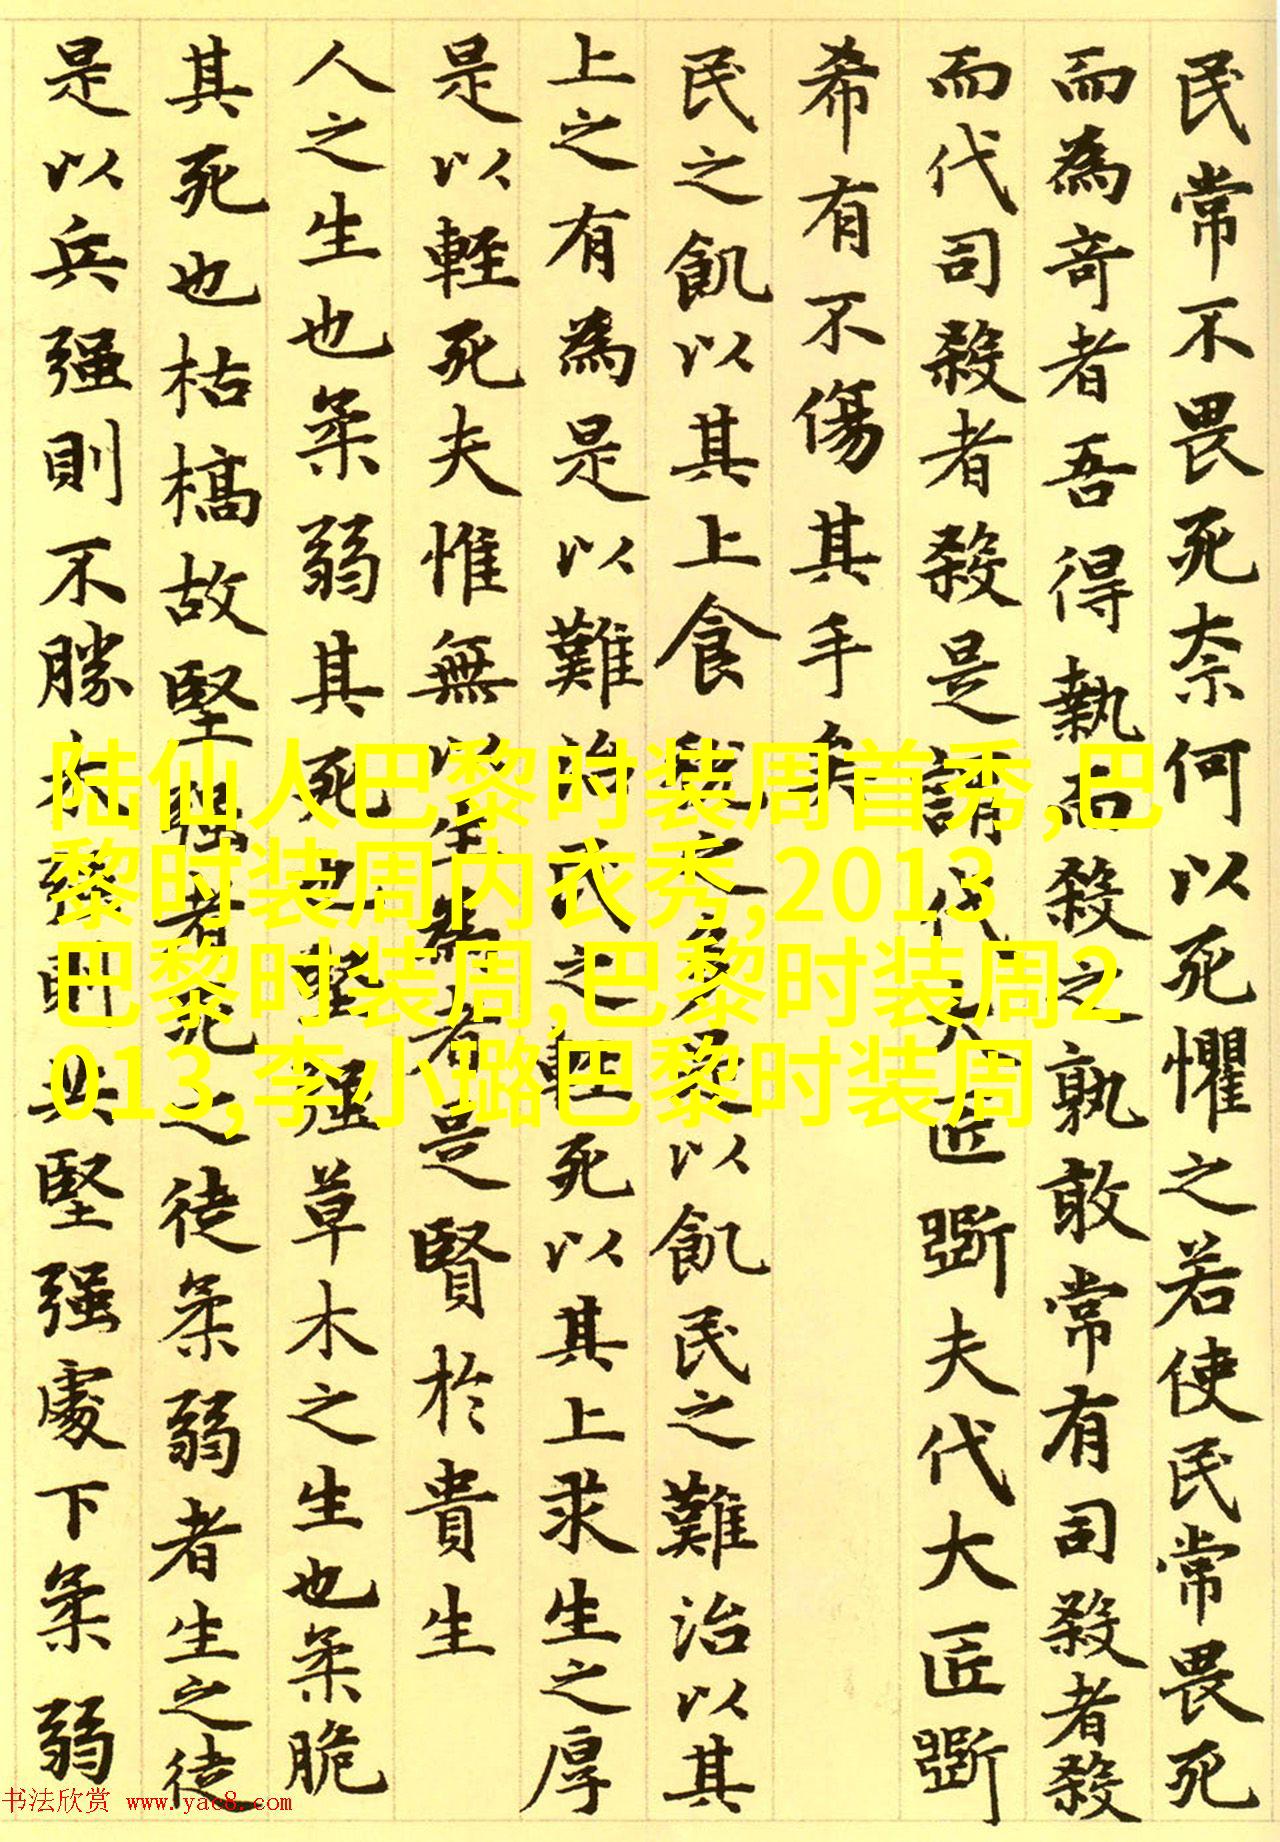 民常不畏死奈何以死懼之若使民常畏死
而為奇者吾得執而殺之孰敢常有司殺者殺
而代司殺者殺是謂代大匠斲夫代大匠斲
希有不傷其手矣
民之飢以其上食稅之多是以飢民之難治以其
上之有為是以難治民之輕死以其上求生之厚
是以輕死夫惟無以生為者是賢於貴生
人之生也柔弱其死也堅强草木之生也柔脆
其死也枯槁故堅强者死之徒柔弱者生之徒
是以兵强則不勝木强則共堅强處下柔弱
陆仙人巴黎时装周首秀,巴
黎时装周内衣秀,2013
巴黎时装周,巴黎时装周2
013,李小璐巴黎时装周
书法欣赏 www.yac8.com